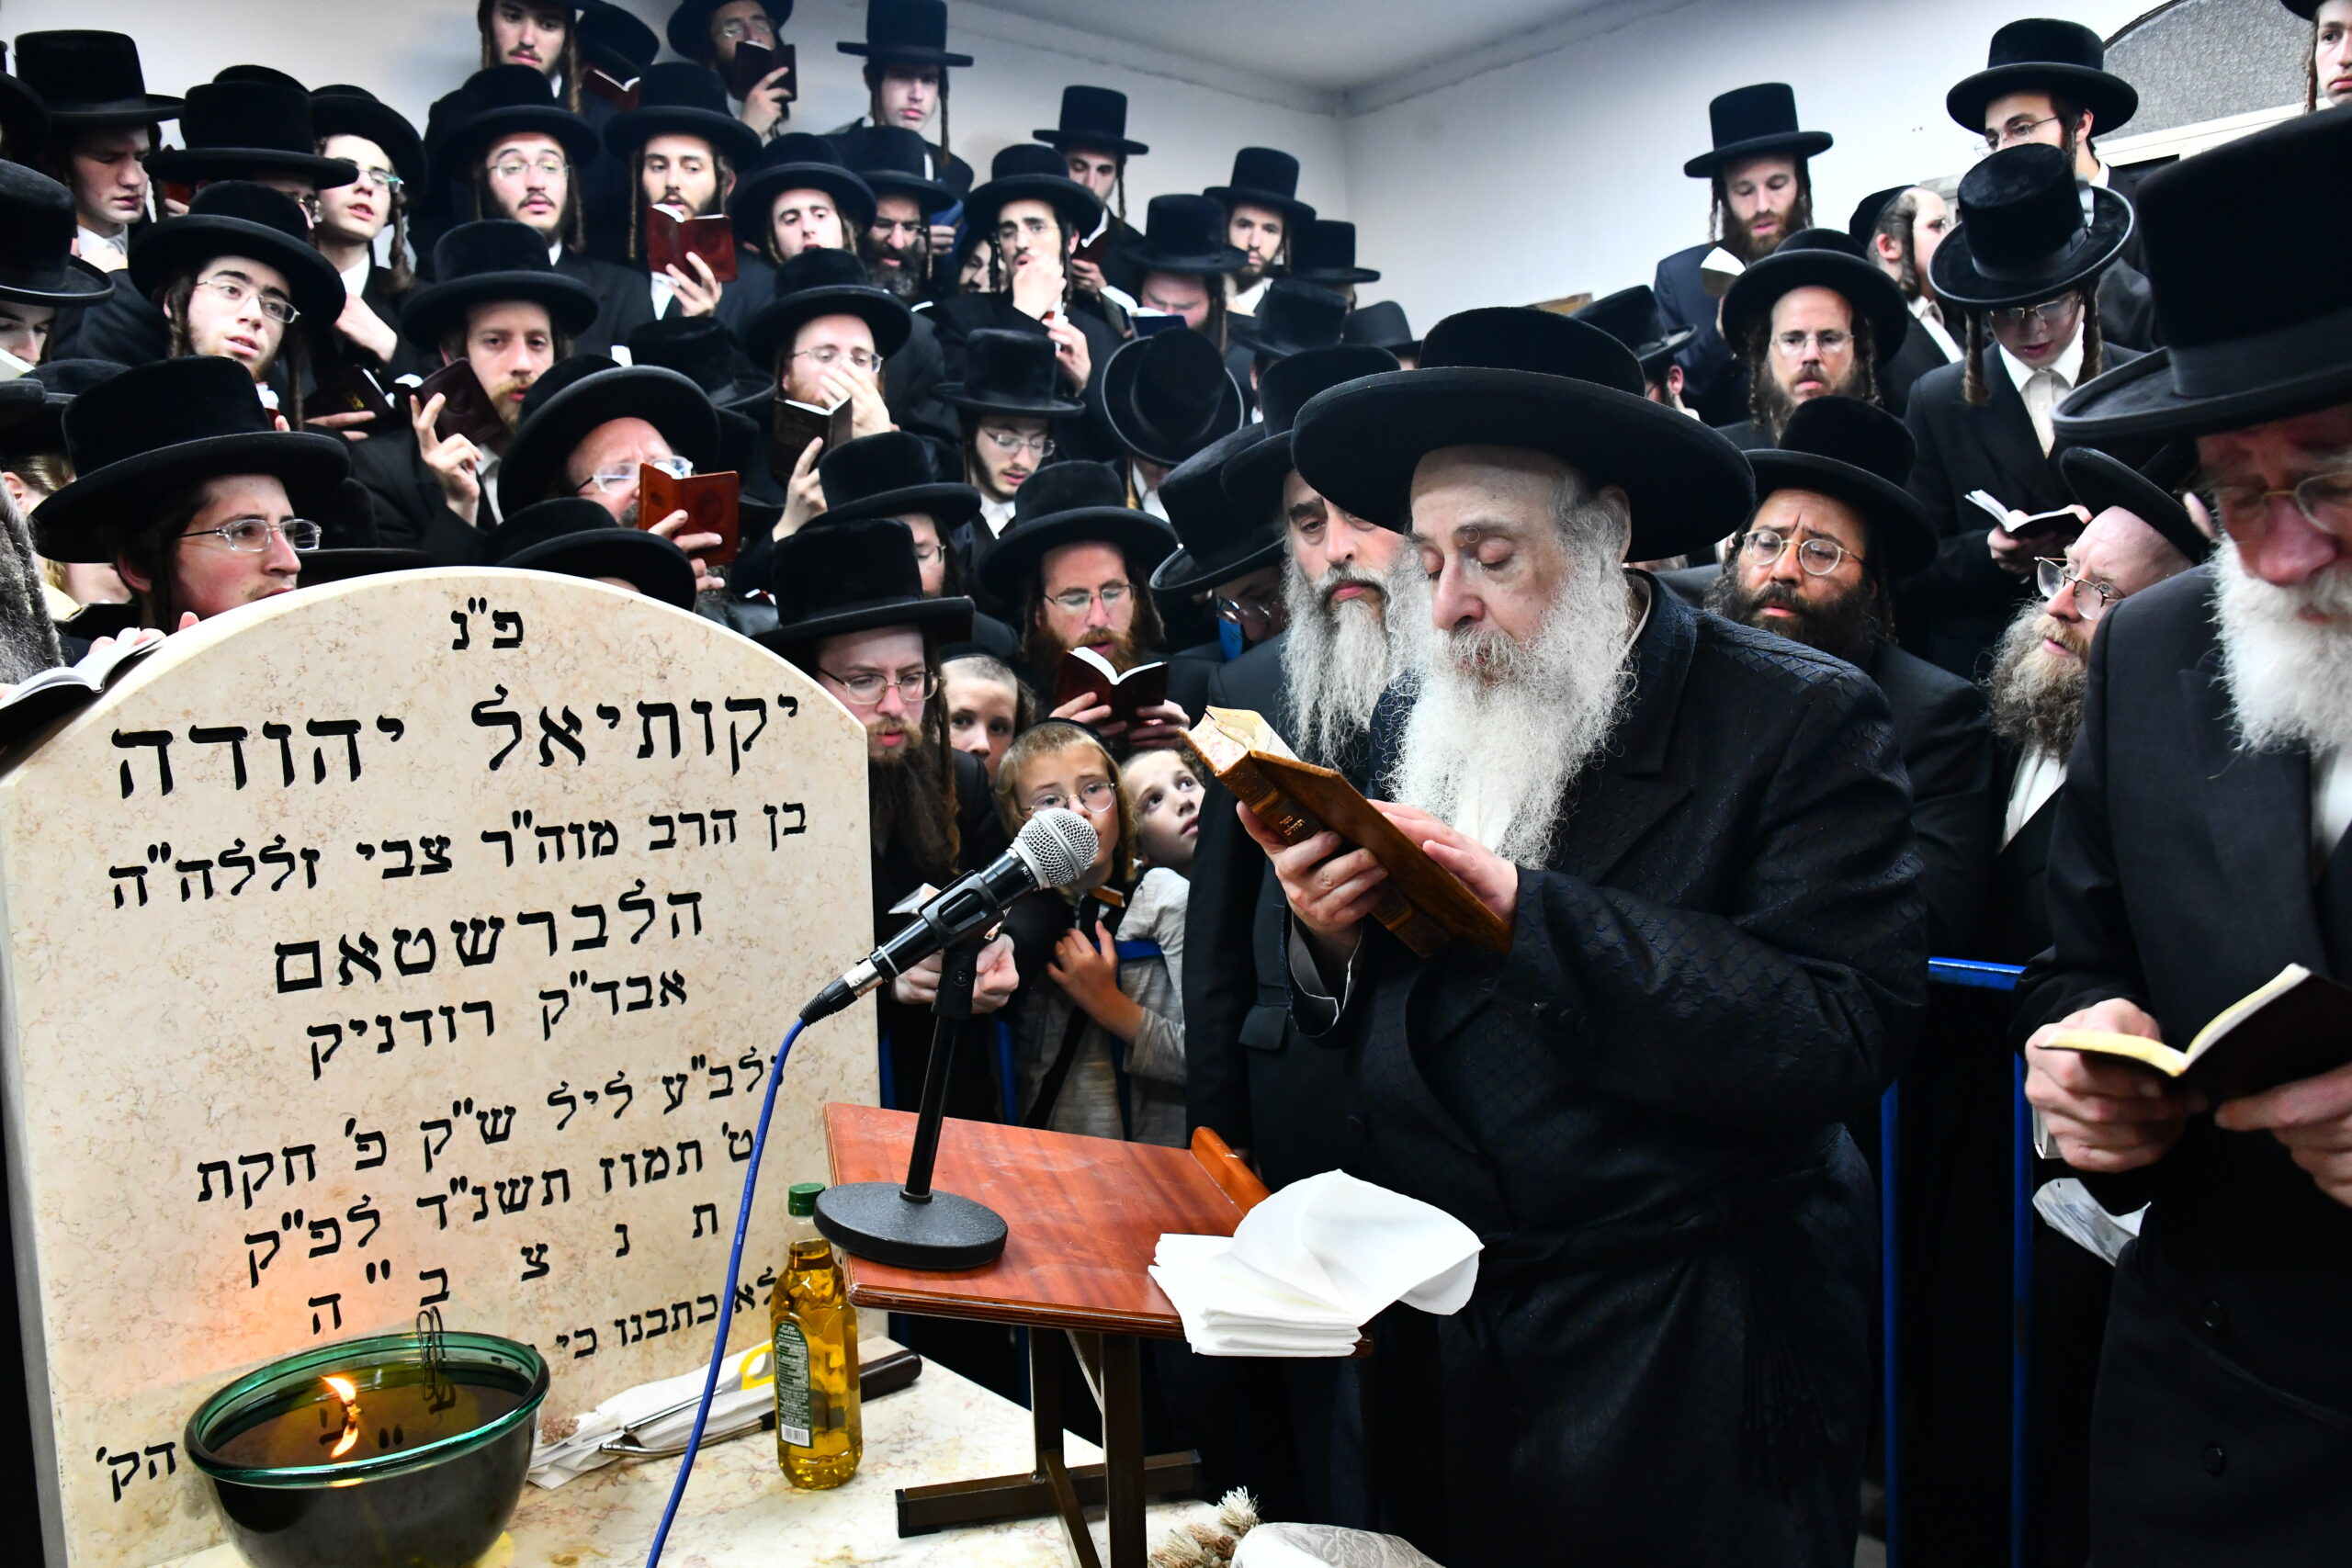 פ"נ
יקותיאל יהודה
בן הרב מוה"ר צבי זללה"ה
הלברשטאם
אבד"ק רודניק
לב"ע ליל ש"ק פ' חקת
ט' תמוז תשנ"ד לפ"ק
ת נ צ ב "ה
לא כתבנו כי
הק'
ספר
תהלים